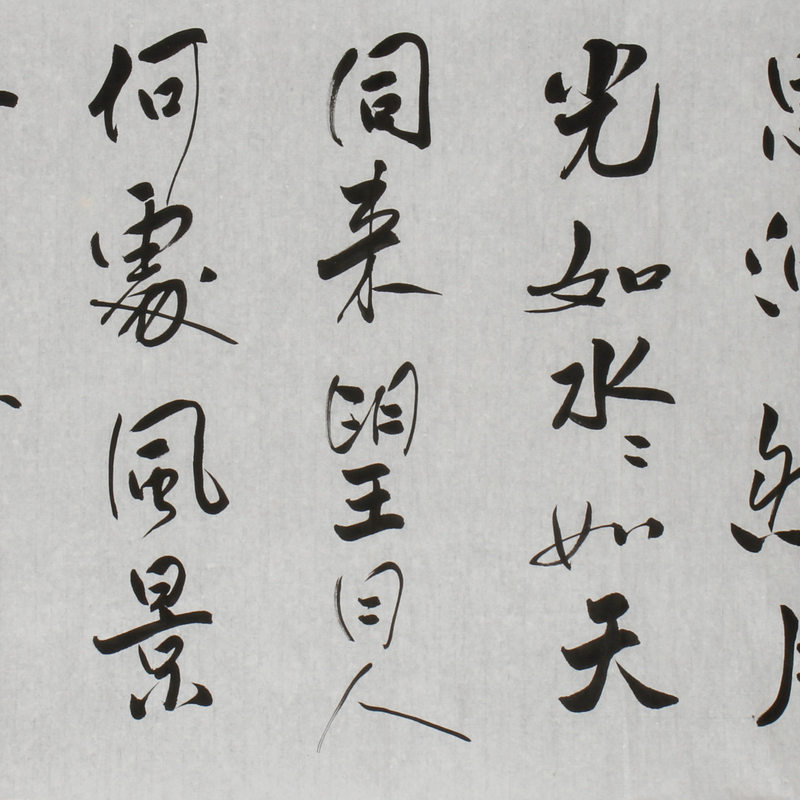 光如水〻如天
同来望月人
何處風景